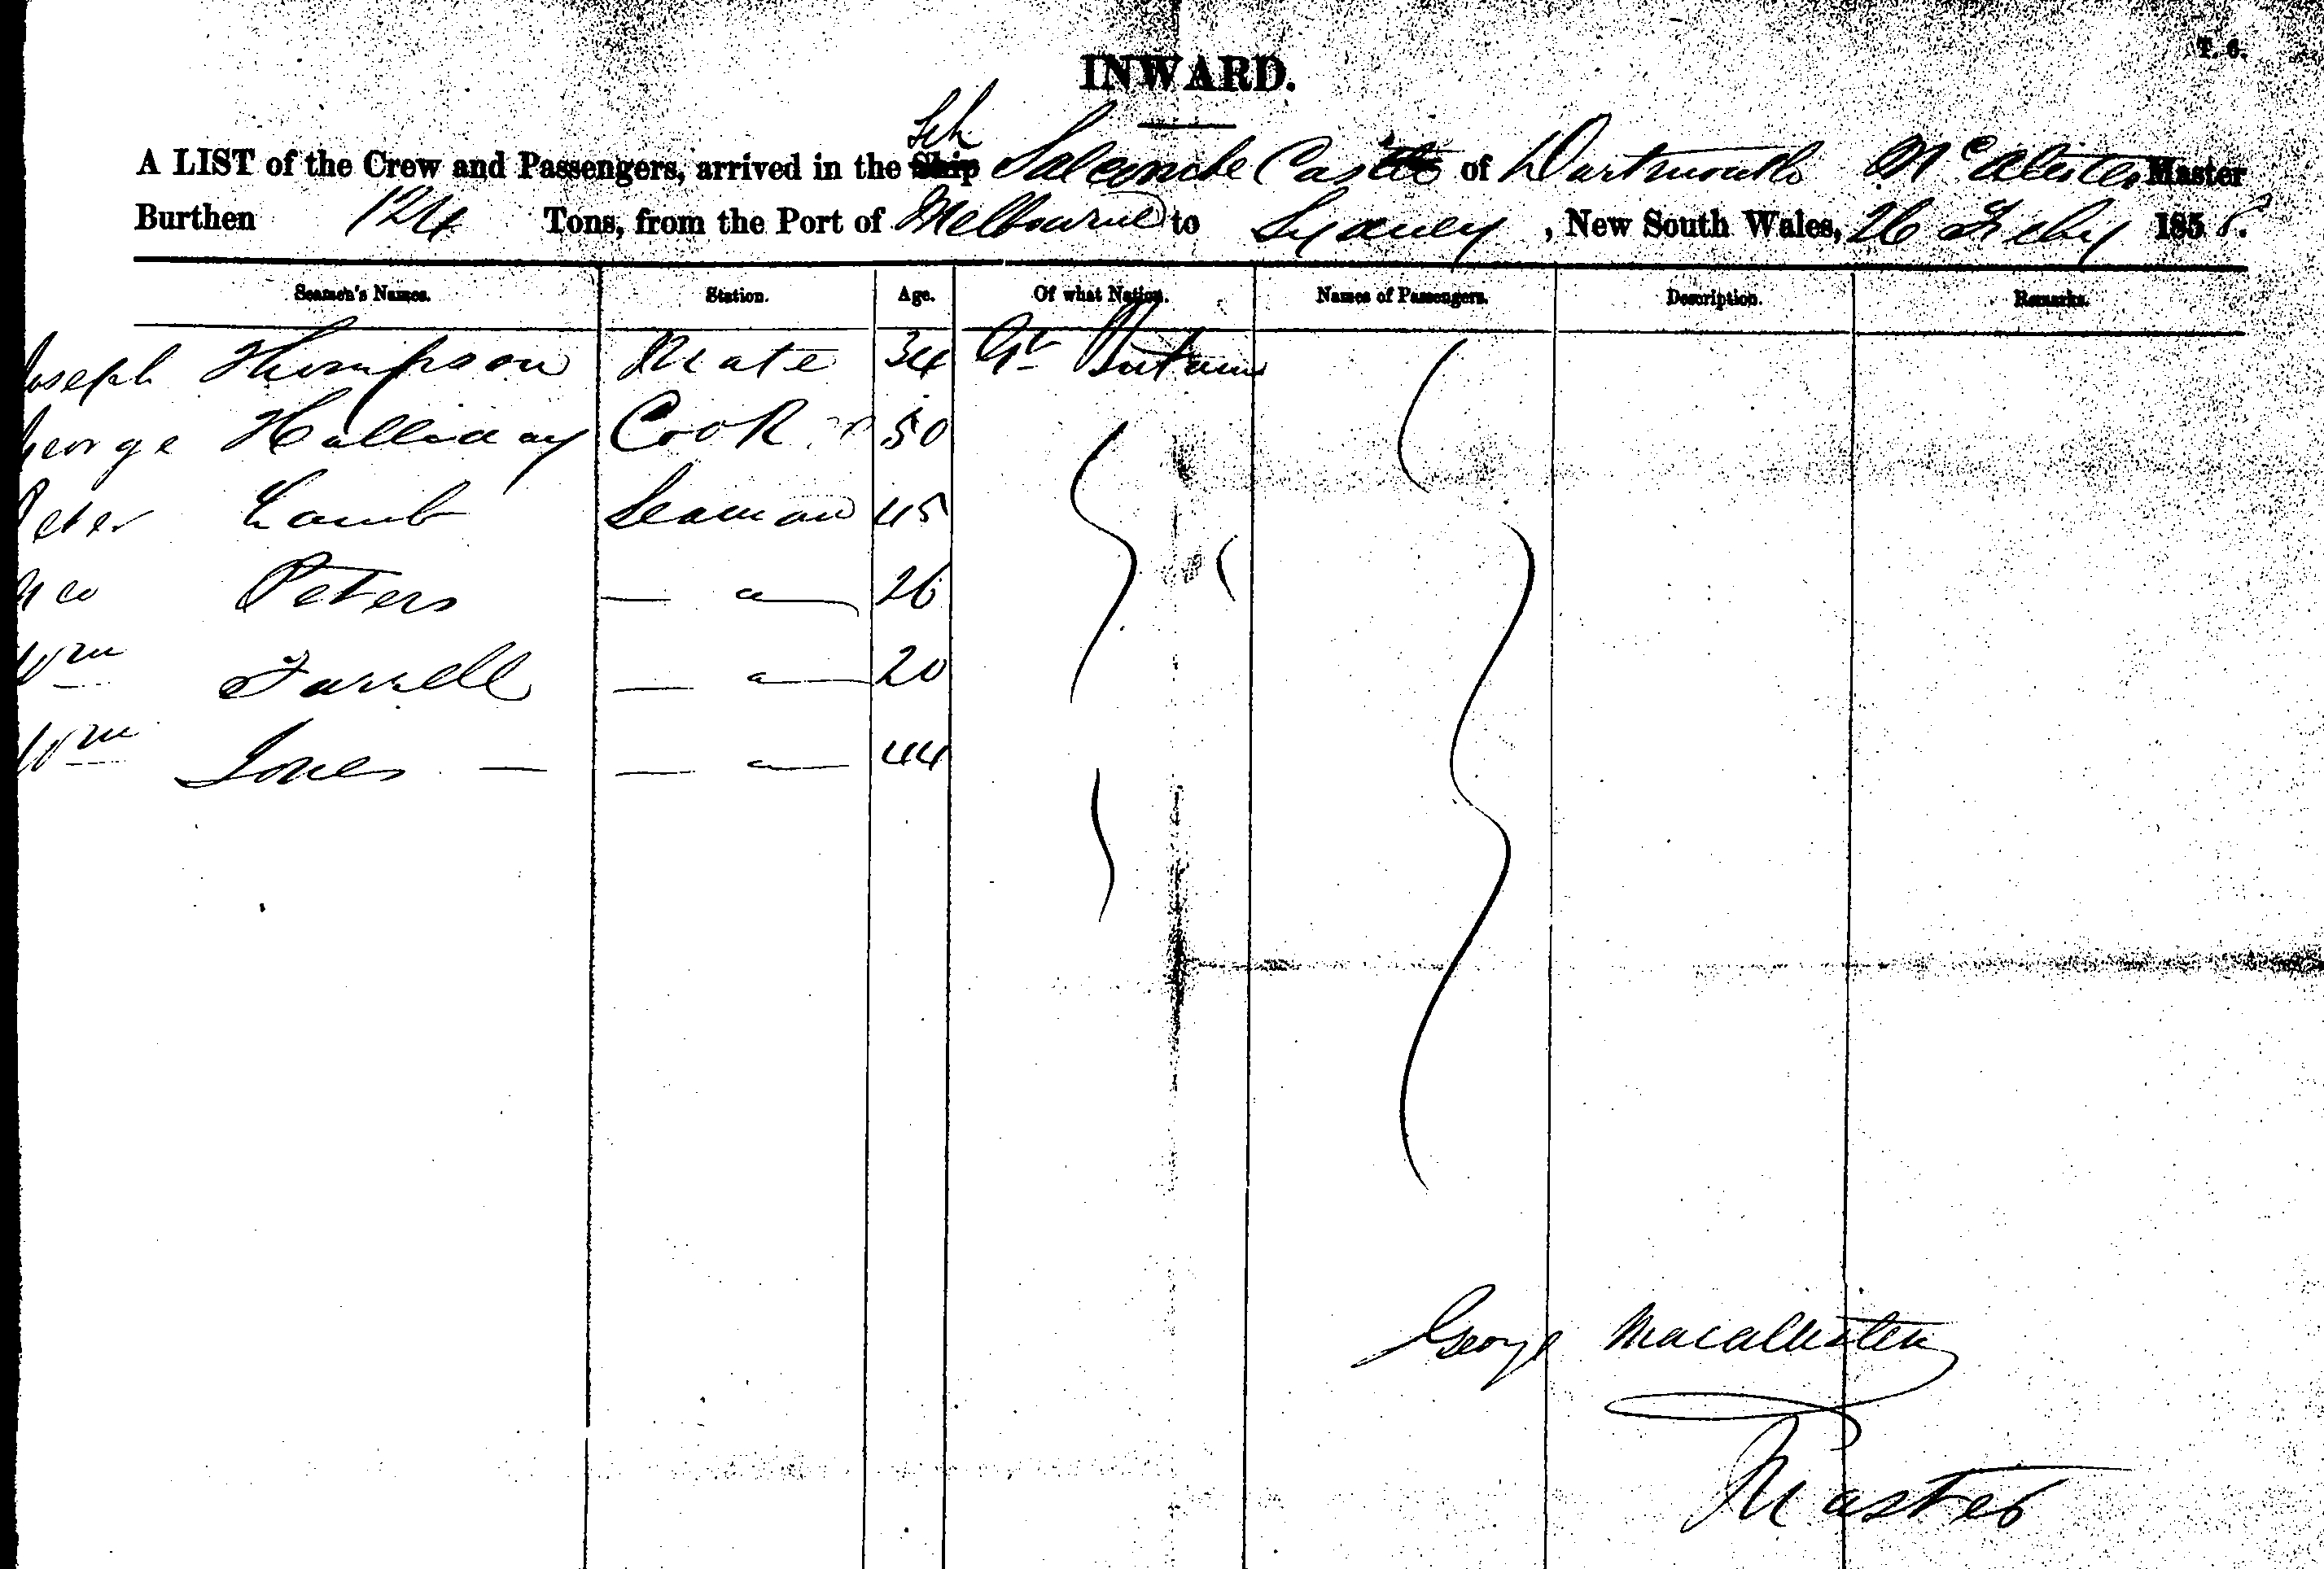 T. 6.
INWARD.
Sch
A LIST of the Crew and Passengers, arrived in the Ship Salcombe Castle of Dartmouth McAlister Master
Burthen 124 Tons, from the Port of Melbourne to Sydney, New South Wales, 26 Feby 1858.
Seamen's Names. Station. Age. Of what Nation. Names of Passengers. Description. Remarks.
Joseph Thompson Mate 34 Gt Britain
George Halliday Cook 50
Peter Lamb Seaman 45
Geo Peters — a — 26
Wm Farrell — a — 20
Wm Jones — — a — 44
George Macallister
Master